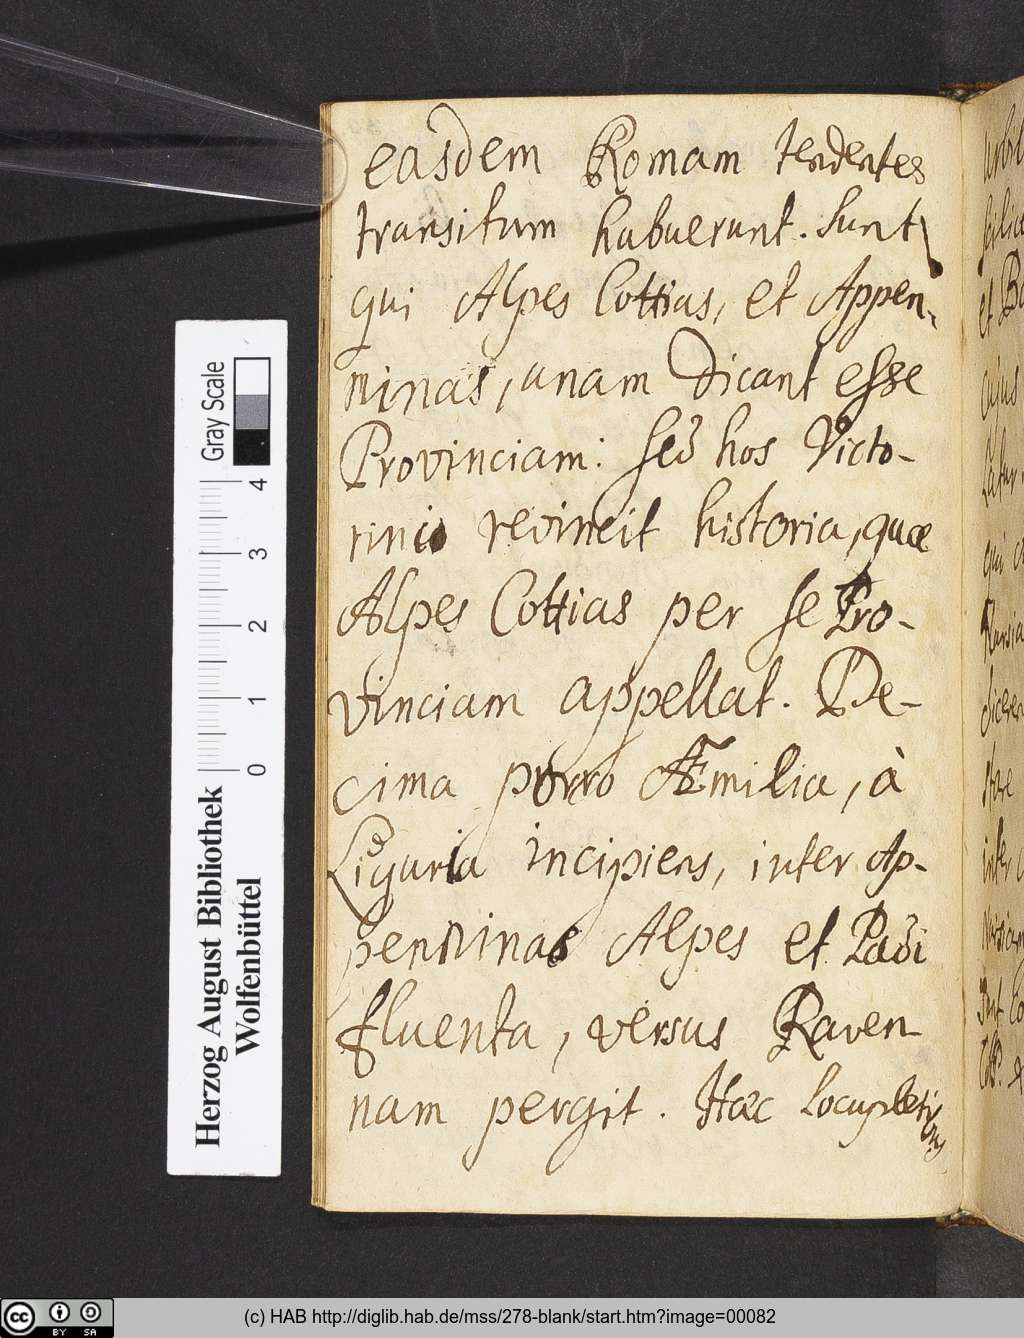 easdem Romam tendentes
transitum habuerunt. Sunt
qui Alpes Cottias, et Appen-
ninas, unam dicant esse
Provinciam: sed hos Victo-
rinis revincit historia, quæ
Alpes Cottias per se Pro-
vinciam appellat. De-
cima porro Æmilia, à
Liguria incipiens, inter Ap-
penninas Alpes et Padi
fluenta, versus Raven
nam pergit. Hæc locupletibus
Herzog August Bibliothek
Wolfenbüttel
0 1 2 3 4
Gray Scale
cc BY SA
(c) HAB http://diglib.hab.de/mss/278-blank/start.htm?image=00082